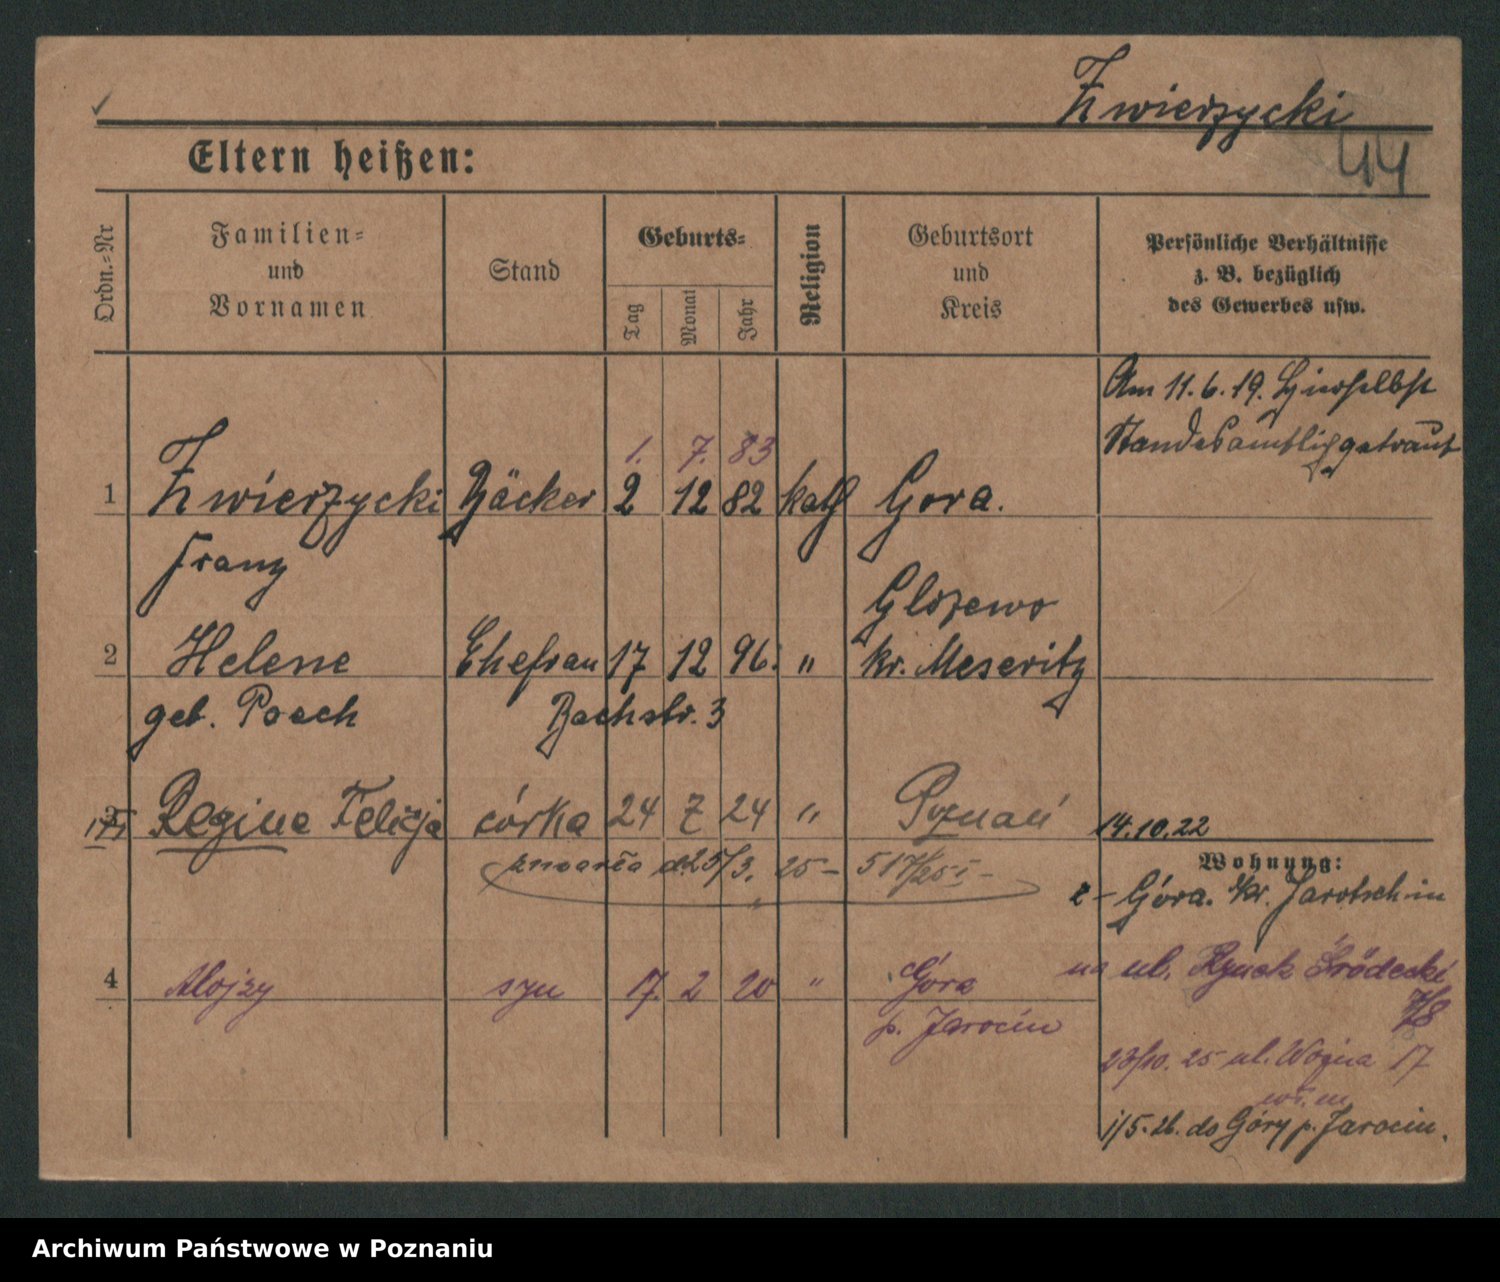 Zwierzycki
44
Eltern heißen:
Ordn.=Nr
Familien=
und
Vornamen
Stand
Geburts=
Tag
Monat
Jahr
Religion
Geburtsort
und
Kreis
Persönliche Verhältnisse
z. B. bezüglich
des Gewerbes usw.
Am 11.6.19. Hierselbst
Standesamtlich getraut
1. 7. 83
1 Zwierzycki Bäcker 2 12 82 kath Gora.
Franz
Glozewo
2 Helene Ehefrau 17 12 96. " Kr. Meseritz
geb. Posch Bachstr. 3
3 Regina Felicja córka 24 7 24 " Poznań
14.10.22
zmarła d. 25/3. 25 – 517/25 I –
Wohnung:
z – Góra. Kr. Jarotschin
4 Alojzy syn 17. 2 20 " Góra
p. Jarocin
na ul. Rynek Śródecki
7/8
23/10. 25 ul. Wozna 17
wł. m
1/5. 26. do Góry p. Jarocin.
Archiwum Państwowe w Poznaniu